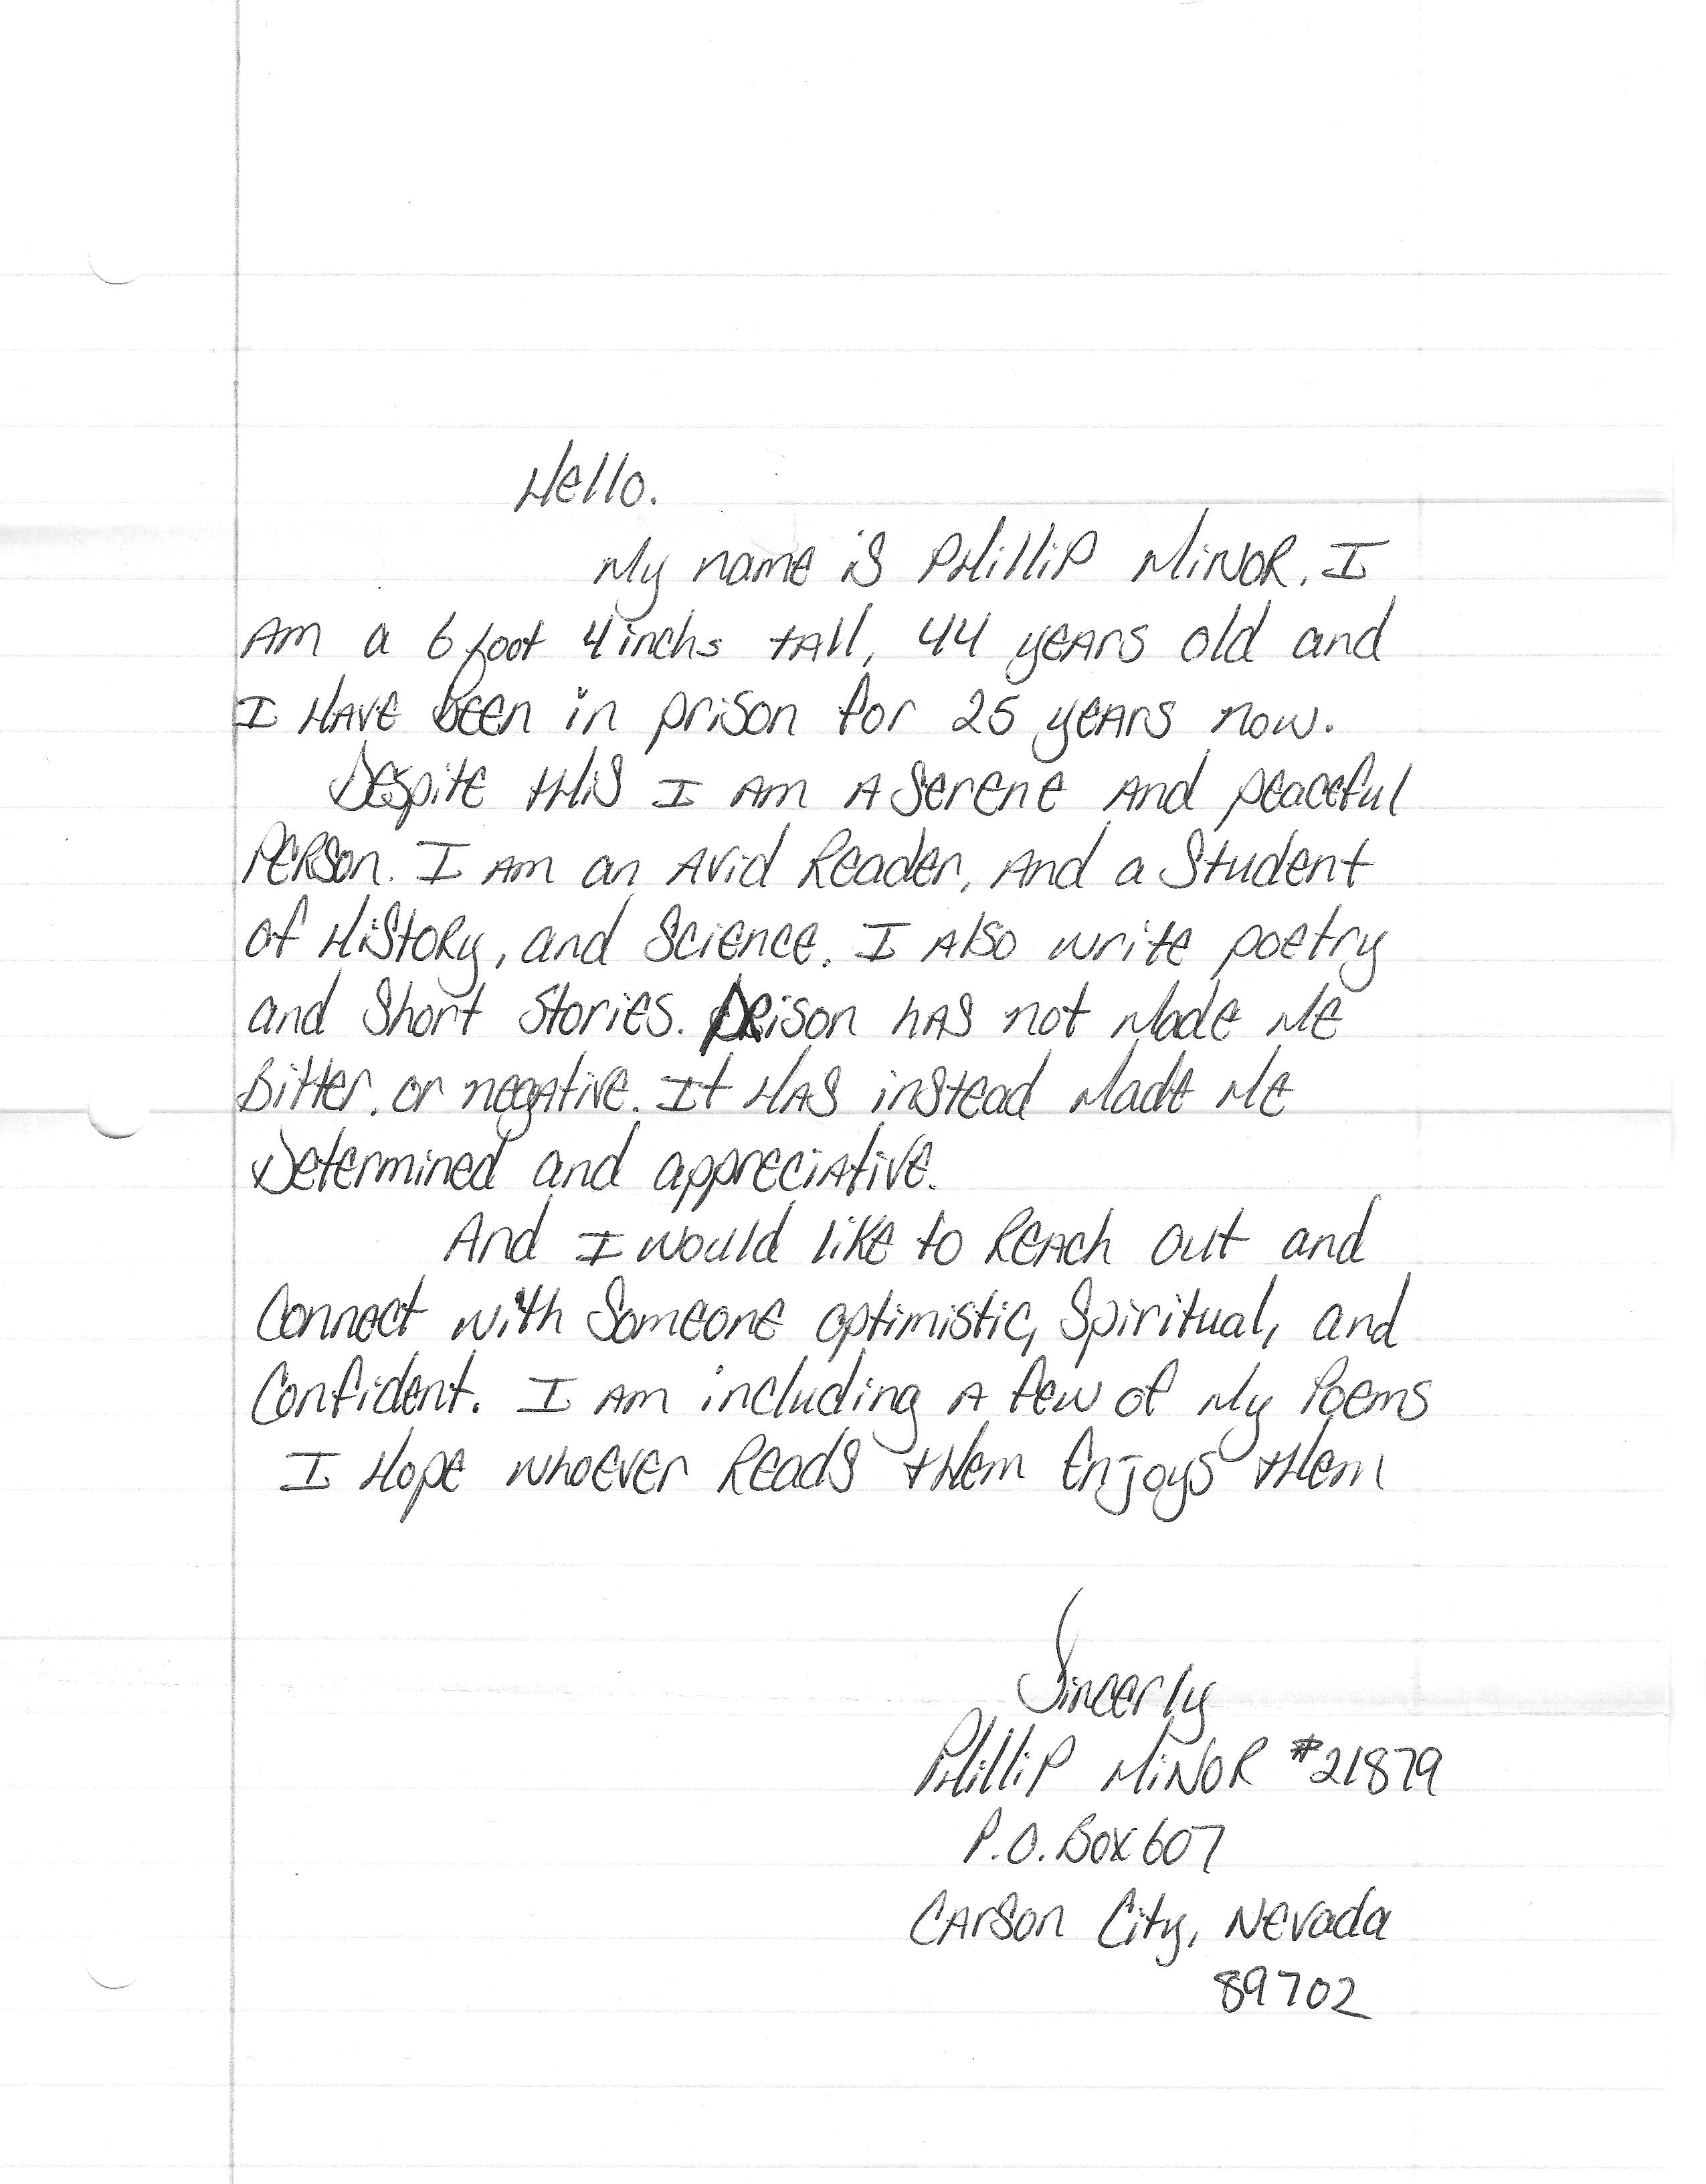 Hello.
My name is Phillip Minor. I
Am a 6 foot 4 inchs tall, 44 years old and
I Have been in prison for 25 years now.
Despite this I Am A Serene And peaceful
Person. I Am an Avid Reader, And a Student
of History, and Science. I Also write poetry
and Short Stories. Prison has not Made Me
Bitter, or negative. It Has instead Made Me
Determined and appreciative.
And I would like to Reach out and
Connect with Someone optimistic, Spiritual, and
Confident. I Am including A few of My Poems
I Hope whoever Reads them Enjoys them
Sincerly
Phillip Minor #21879
P.O. Box 607
Carson City, Nevada
89702